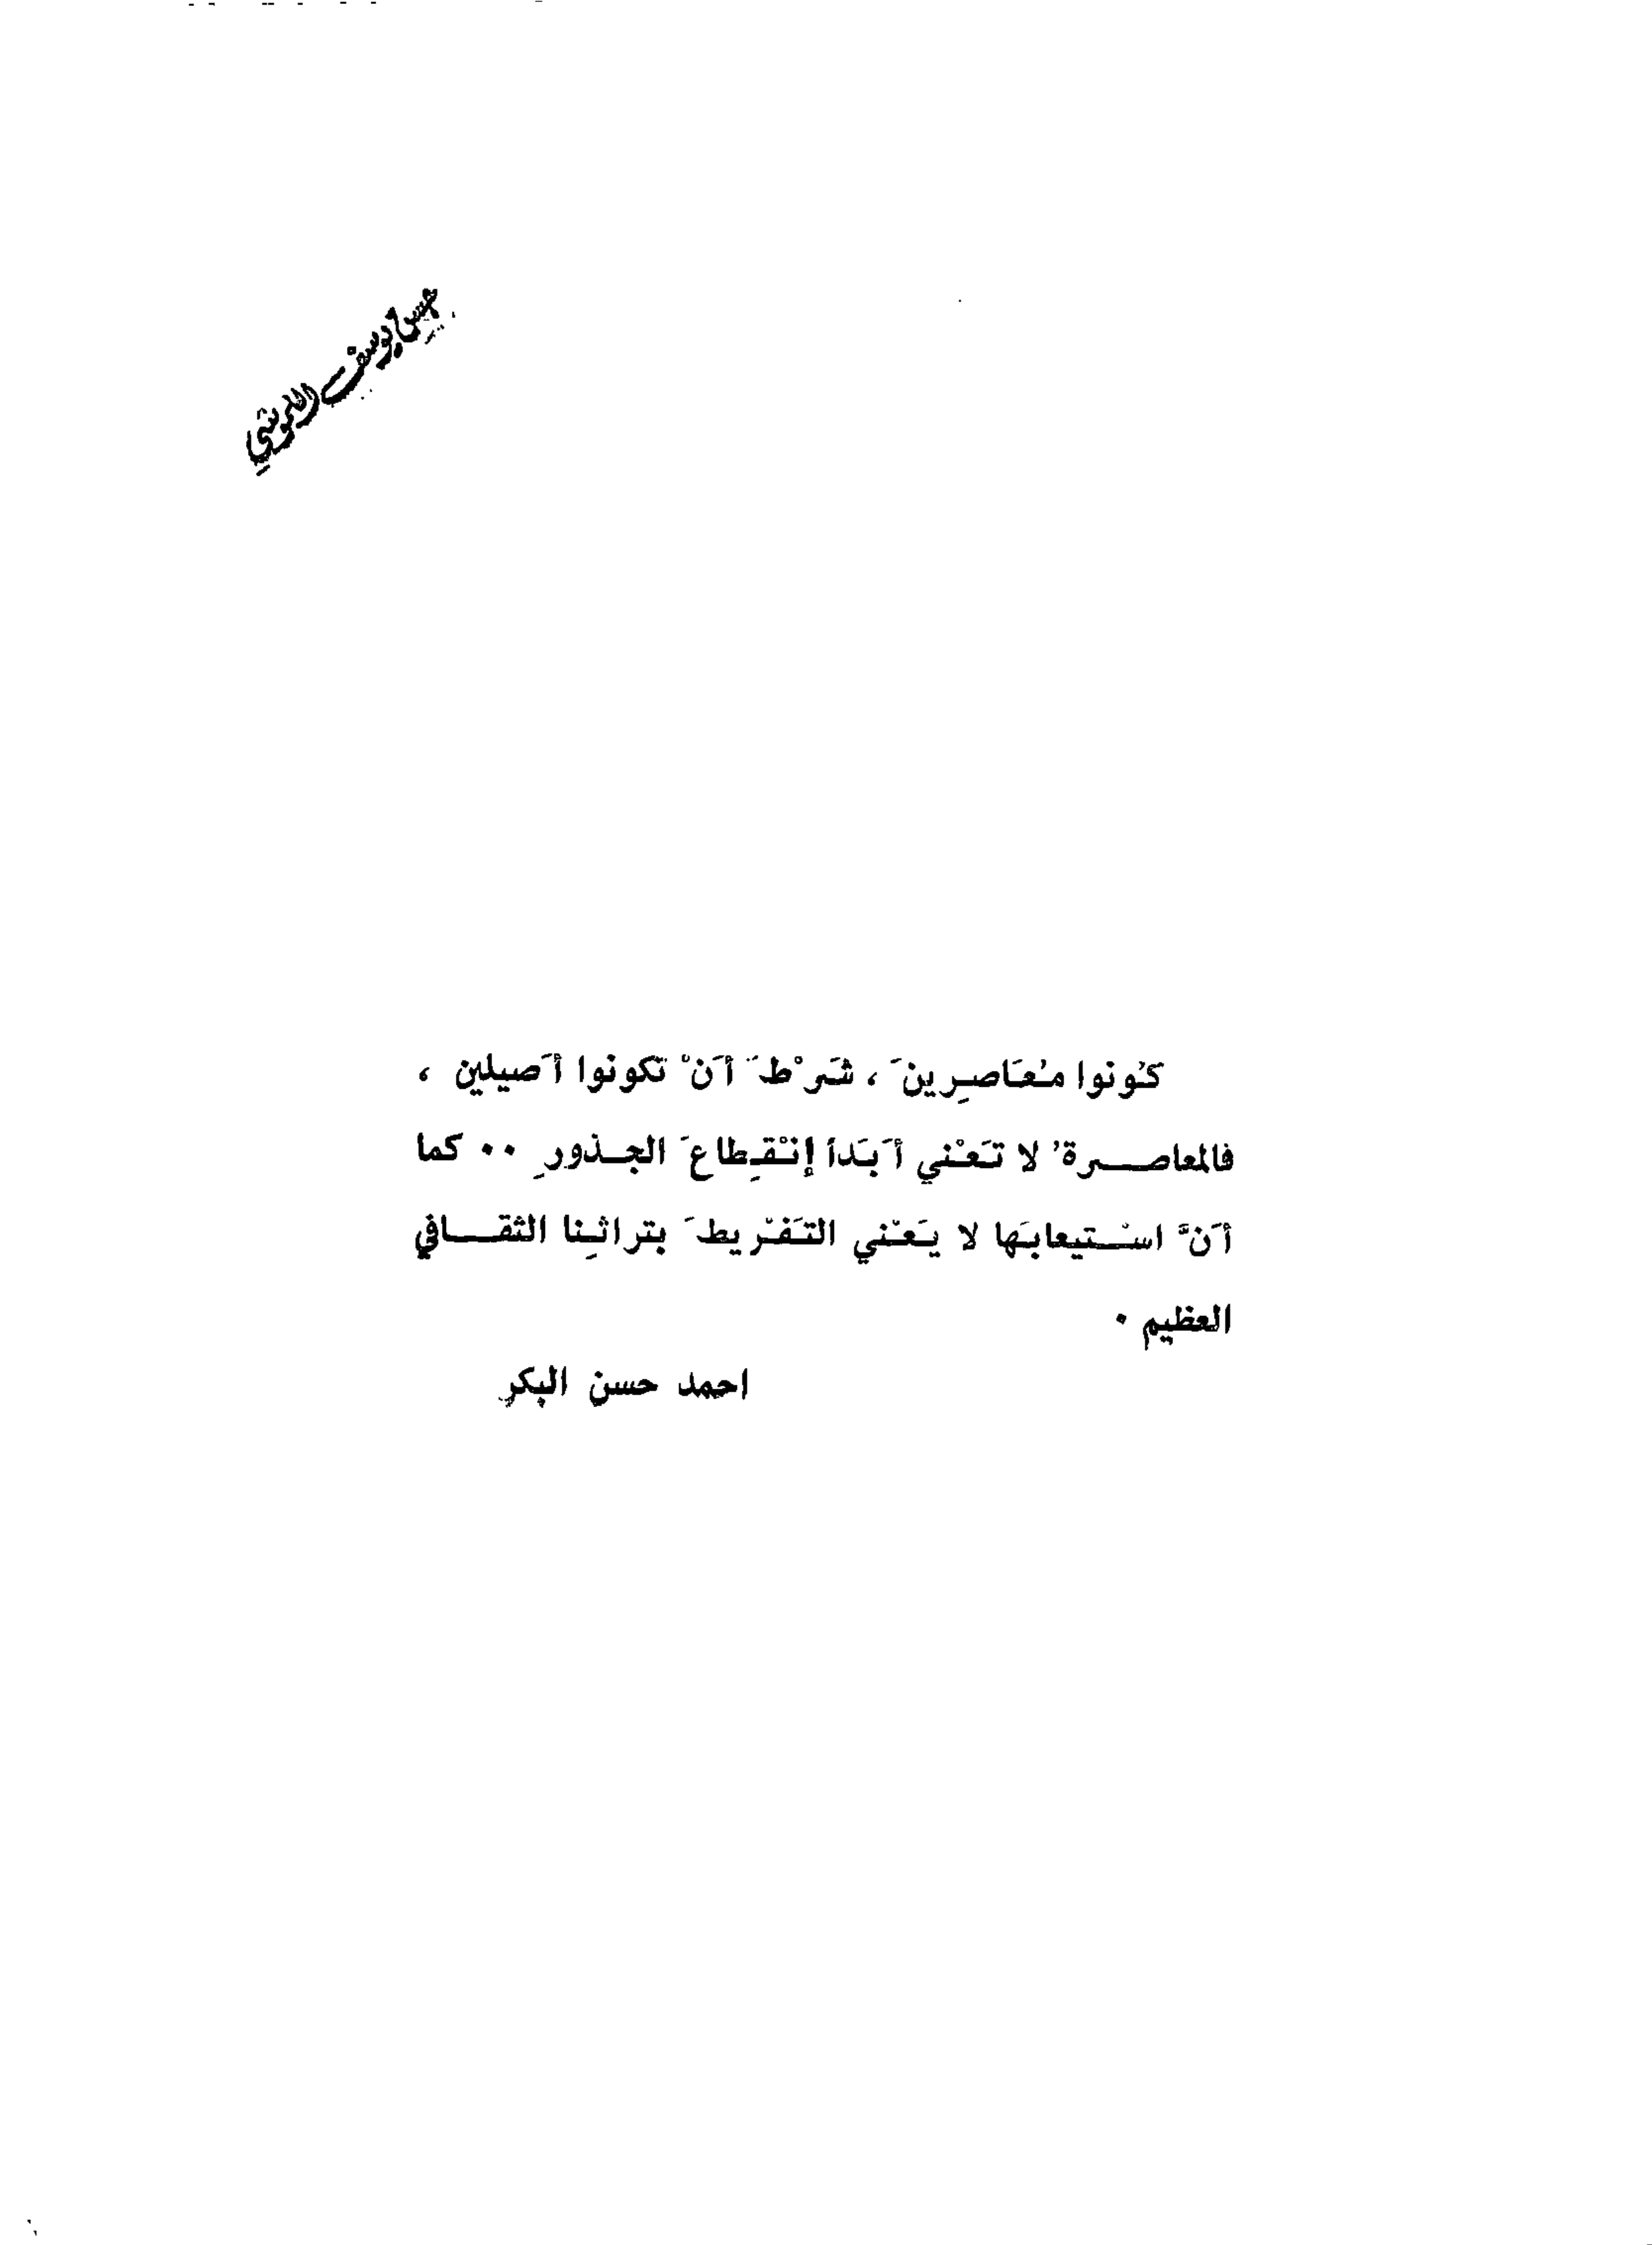 كُونوا مُعَاصِرِينَ ، شَرْطَ أَنْ تكونوا أَصيلين ،
فالمعاصــرةُ لا تَعْني أَبَداً إنْقِطاعَ الجـذورِ ٠٠ كما
أَنَّ اسْـتيعابَها لا يَعْني التَفْريطَ بتراثِنا الثقــافي
العظيم ٠
احمد حسن البكر